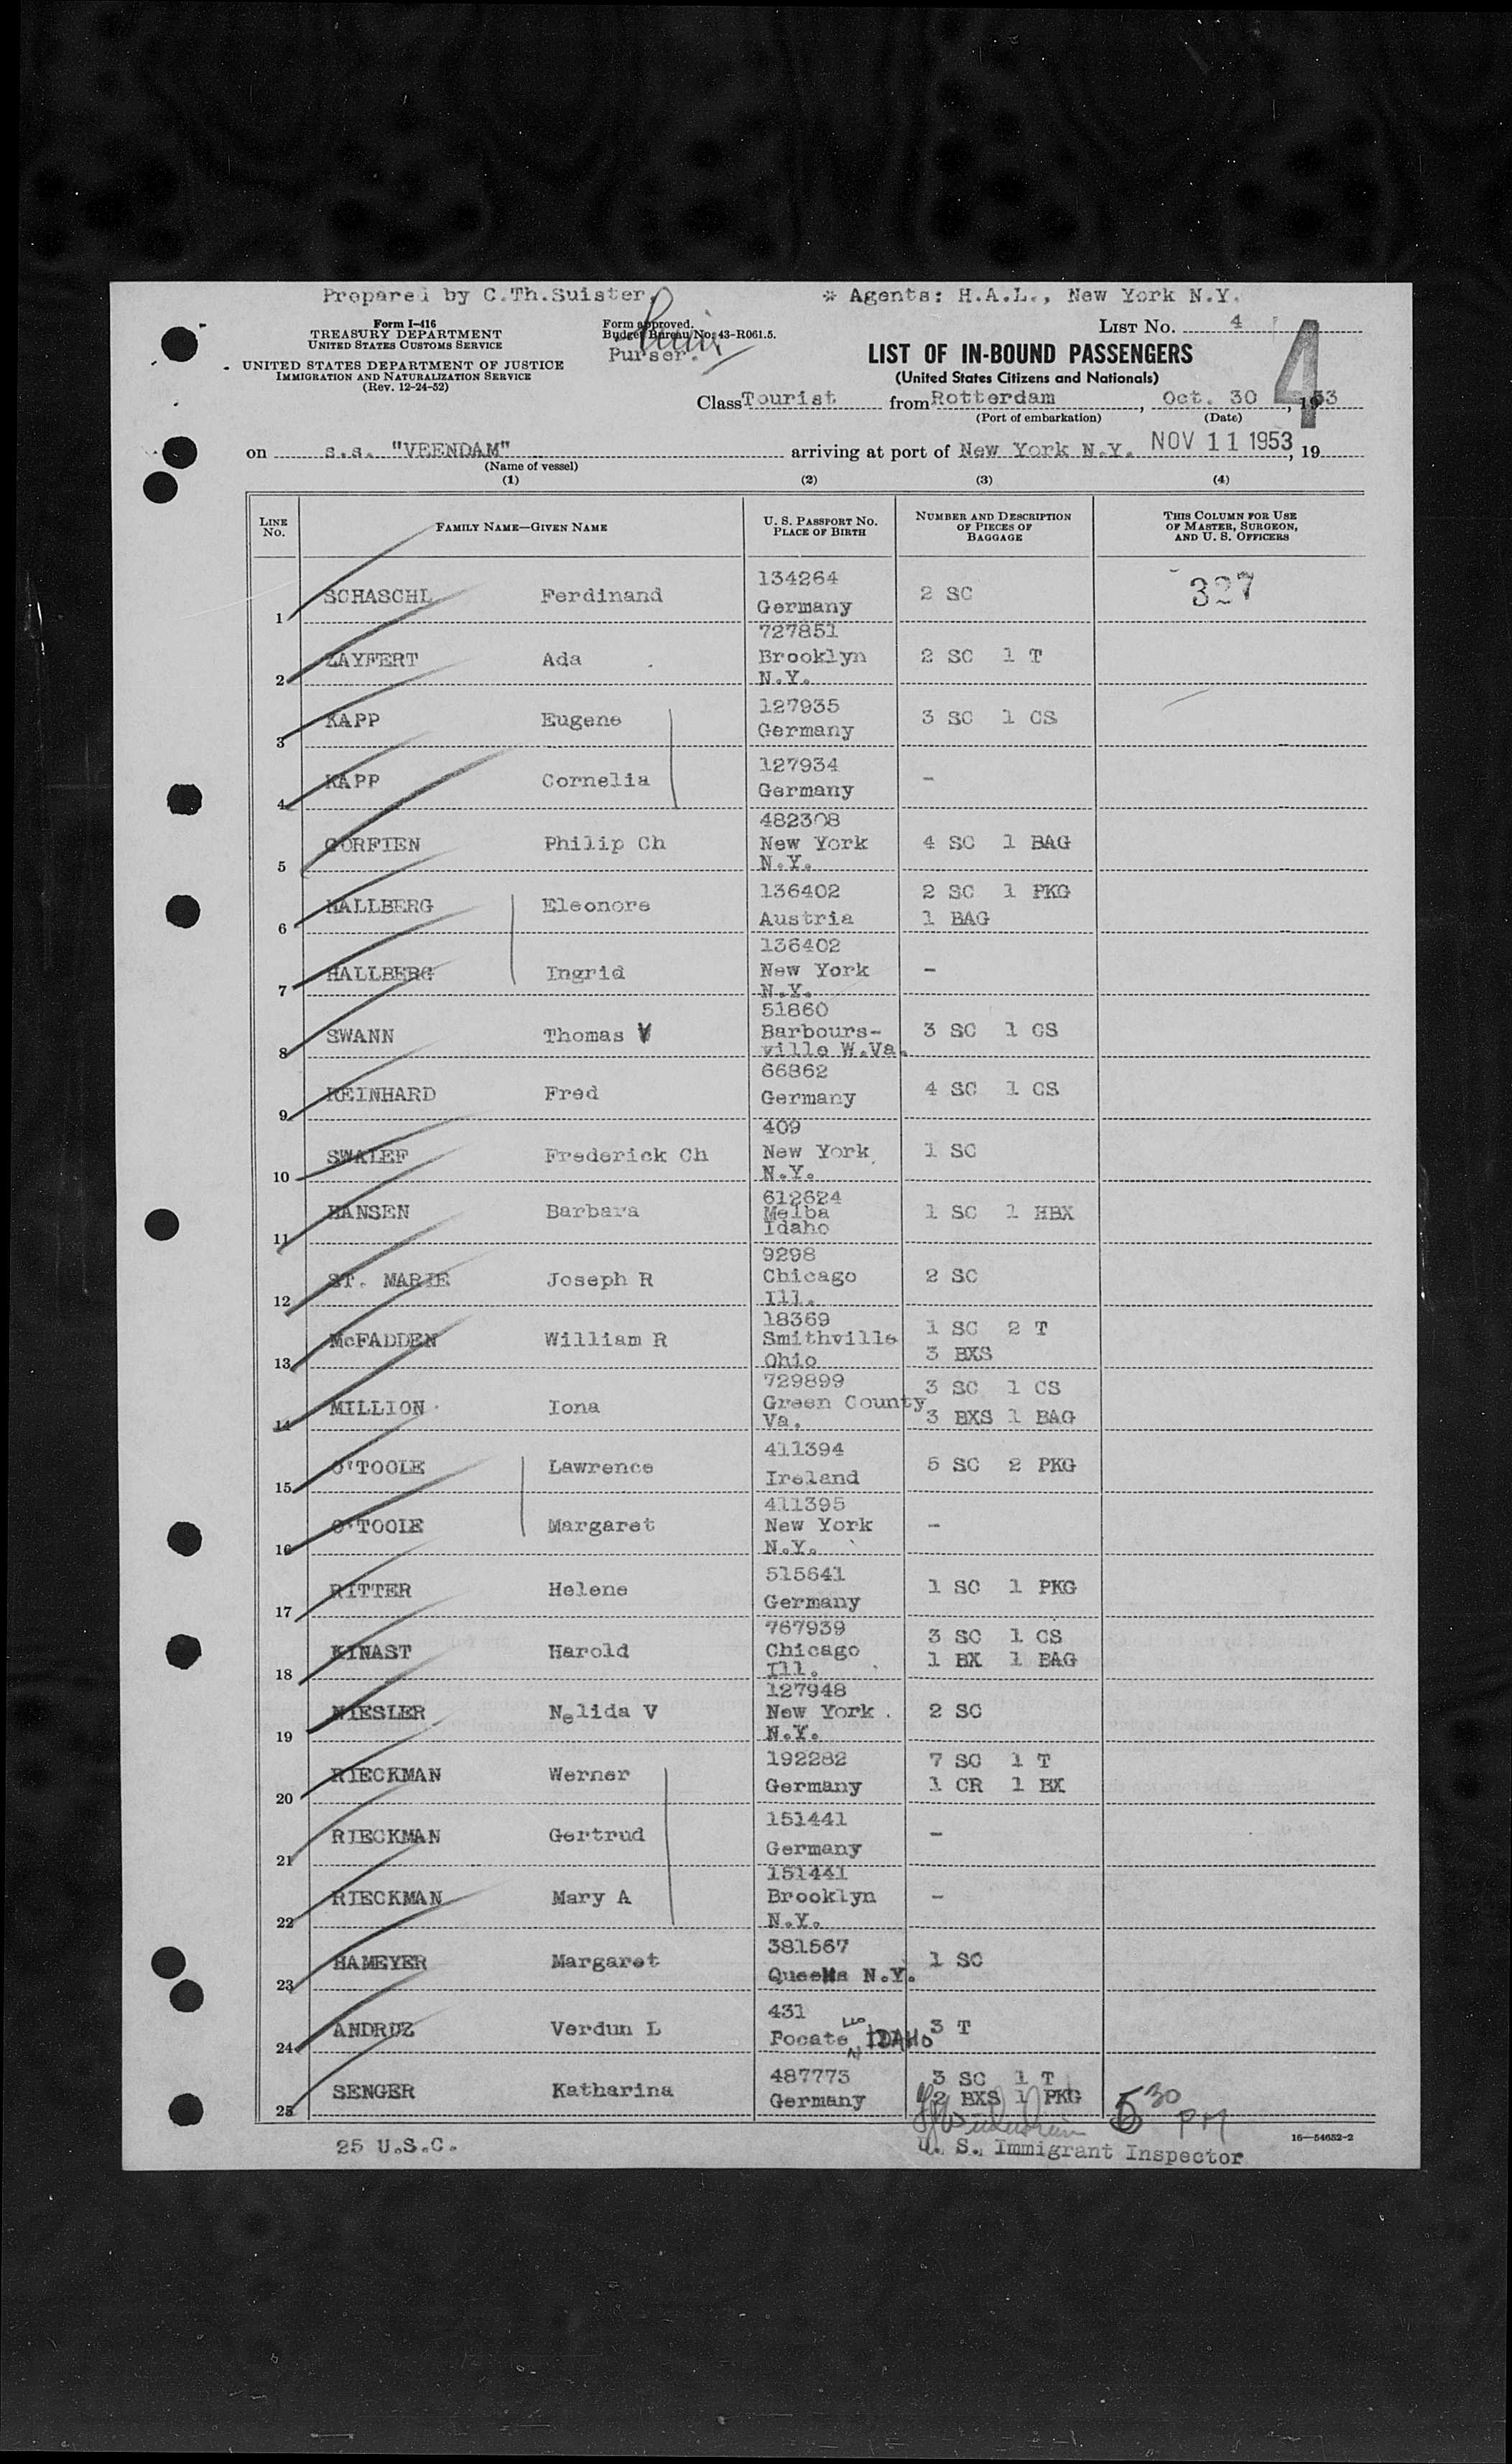 Prepared by C.Th.Suister,
* Agents: H.A.L., New York N.Y.
Form I-416
TREASURY DEPARTMENT
UNITED STATES CUSTOMS SERVICE
UNITED STATES DEPARTMENT OF JUSTICE
IMMIGRATION AND NATURALIZATION SERVICE
(Rev. 12-24-52)
Form approved.
Budget Bureau No. 43-R061.5.
Purser.
LIST NO. 4
4
LIST OF IN-BOUND PASSENGERS
(United States Citizens and Nationals)
Class Tourist from Rotterdam, Oct. 30, 1953
(Port of embarkation) (Date)
on s.s. "VEENDAM" arriving at port of New York N.Y. NOV 11 1953, 19
(Name of vessel)
(1) (2) (3) (4)
LINE NO.
FAMILY NAME—GIVEN NAME
U. S. PASSPORT NO.
PLACE OF BIRTH
NUMBER AND DESCRIPTION
OF PIECES OF
BAGGAGE
THIS COLUMN FOR USE
OF MASTER, SURGEON,
AND U. S. OFFICERS
134264
1 SCHASCHL Ferdinand 2 SC 327
Germany
727851
2 ZAYFERT Ada Brooklyn 2 SC 1 T
N.Y.
127935
3 KAPP Eugene 3 SC 1 CS
Germany
127934
4 KAPP Cornelia -
Germany
482308
5 GORFIEN Philip Ch New York 4 SC 1 BAG
N.Y.
136402 2 SC 1 PKG
6 HALLBERG Eleonore
Austria 1 BAG
136402
7 HALLBERG Ingrid New York -
N.Y.
51860
8 SWANN Thomas V Barbours- 3 SC 1 CS
ville W.Va.
66862
9 REINHARD Fred 4 SC 1 CS
Germany
409
10 SWALEF Frederick Ch New York 1 SC
N.Y.
612624
11 HANSEN Barbara Melba 1 SC 1 HBX
Idaho
9298
12 ST. MARIE Joseph R Chicago 2 SC
Ill.
18369 1 SC 2 T
13 McFADDEN William R Smithville
Ohio 3 BXS
729899 3 SC 1 CS
14 MILLION Iona Green County
Va. 3 BXS 1 BAG
411394
15 O'TOOLE Lawrence 5 SC 2 PKG
Ireland
411395
16 O'TOOLE Margaret New York -
N.Y.
515641
17 RITTER Helene 1 SC 1 PKG
Germany
767939 3 SC 1 CS
18 KINAST Harold Chicago 1 BX 1 BAG
Ill.
127948
19 NIESLER Nelida V New York 2 SC
N.Y.
192282 7 SC 1 T
20 RIECKMAN Werner
Germany 1 CR 1 BX
151441
21 RIECKMAN Gertrud -
Germany
151441
22 RIECKMAN Mary A Brooklyn -
N.Y.
381567
23 HAMEYER Margaret 1 SC
Queens N.Y.
431
24 ANDRUZ Verdun L 3 T
Pocate LLO IDAHO
487773 3 SC 1 T
25 SENGER Katharina
Germany 2 BXS 1 PKG
5 30 PM
25 U.S.C.
U. S. Immigrant Inspector
16—54652-2